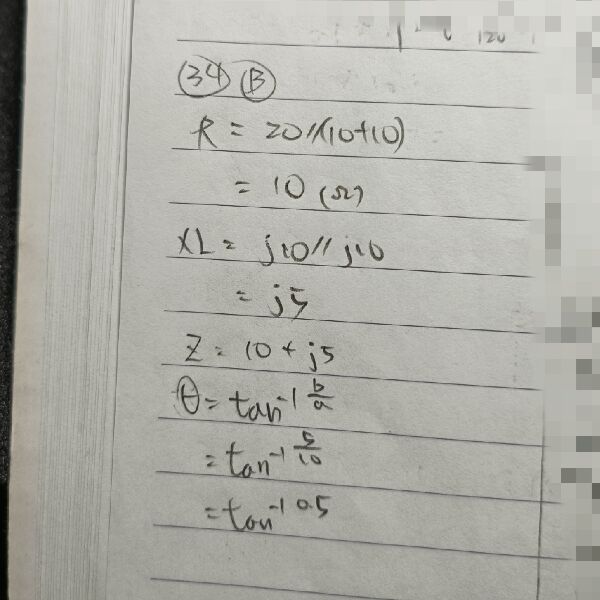 34 B
R = 20//(10+10)
= 10 (Ω)
XL = j10 // j10
= j5
Z = 10 + j5
θ = tan⁻¹ b/a
= tan⁻¹ 5/10
= tan⁻¹ 0.5